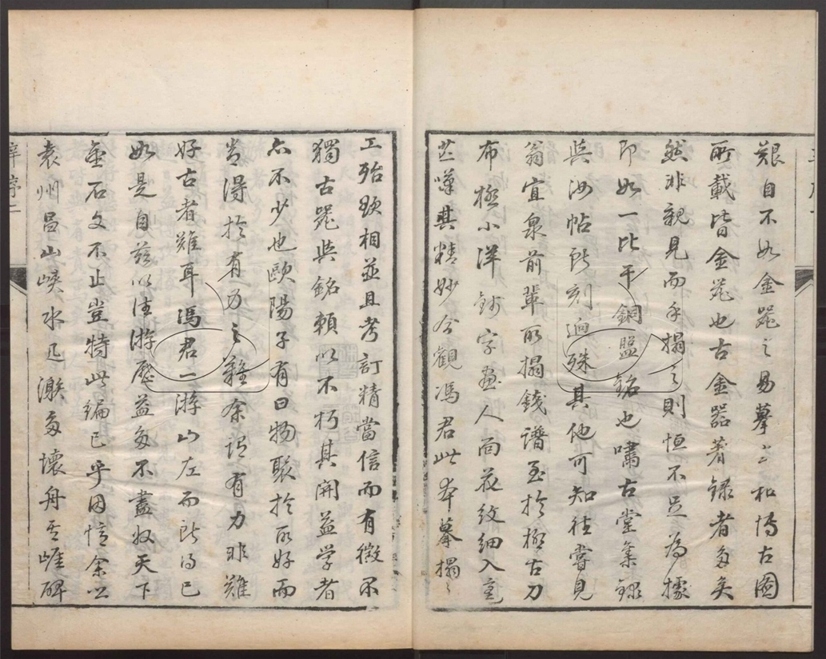 艱自不如金器之易摹宣和博古圖
所載皆金器也古金器著錄者多矣
然非親見而手搨之則恒不足為據
即如一比干銅盤銘也嘯古堂集録
與汝帖所刻逈殊其他可知往嘗見
翁宜泉前輩所搨錢譜至於極古刀
布極小洋錢字畫人面花紋細入毫
芒嘆其精妙今觀馮君此本摹搨之
工殆欲相並且考訂精當信而有徵不
獨古器與銘賴以不朽其開益學者
亦不少也歐陽子有曰物聚於所好而
常得於有力之難余謂有力非難
好古者難耳馮君一游山左而所得已
如是自茲以往游歷益多不盡收天下
金石文不止豈特此編已乎因憶余從
袁州昌山峽水 灘多壞舟 崖碑